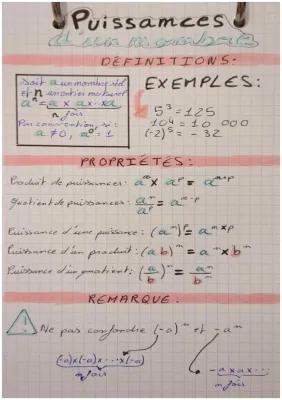 Puissances
d'un nombre
DÉFINITIONS:
Soit a un nombre réel
et n un entier naturel
aⁿ = a × a × ... a
n fois
Par convention, si :
a ≠ 0, a⁰ = 1
EXEMPLES:
5³ = 125
10⁴ = 10 000
(-2)⁵ = - 32
PROPRIÉTÉS:
Produit de puissances: aᵐ × aᵖ = aᵐ⁺ᵖ
Quotient de puissances: aᵐ/aᵖ = aᵐ⁻ᵖ
Puissance d'une puissance: (aᵐ)ᵖ = aᵐˣᵖ
Puissance d'un produit: (ab)ᵐ = aᵐ × bᵐ
Puissance d'un quotient: (a/b)ᵐ = aᵐ/bᵐ
REMARQUE:
! Ne pas confondre (-a)ᵐ et -aᵐ
(-a)×(-a)×...×(-a)
n fois
- a×a×...
n fois